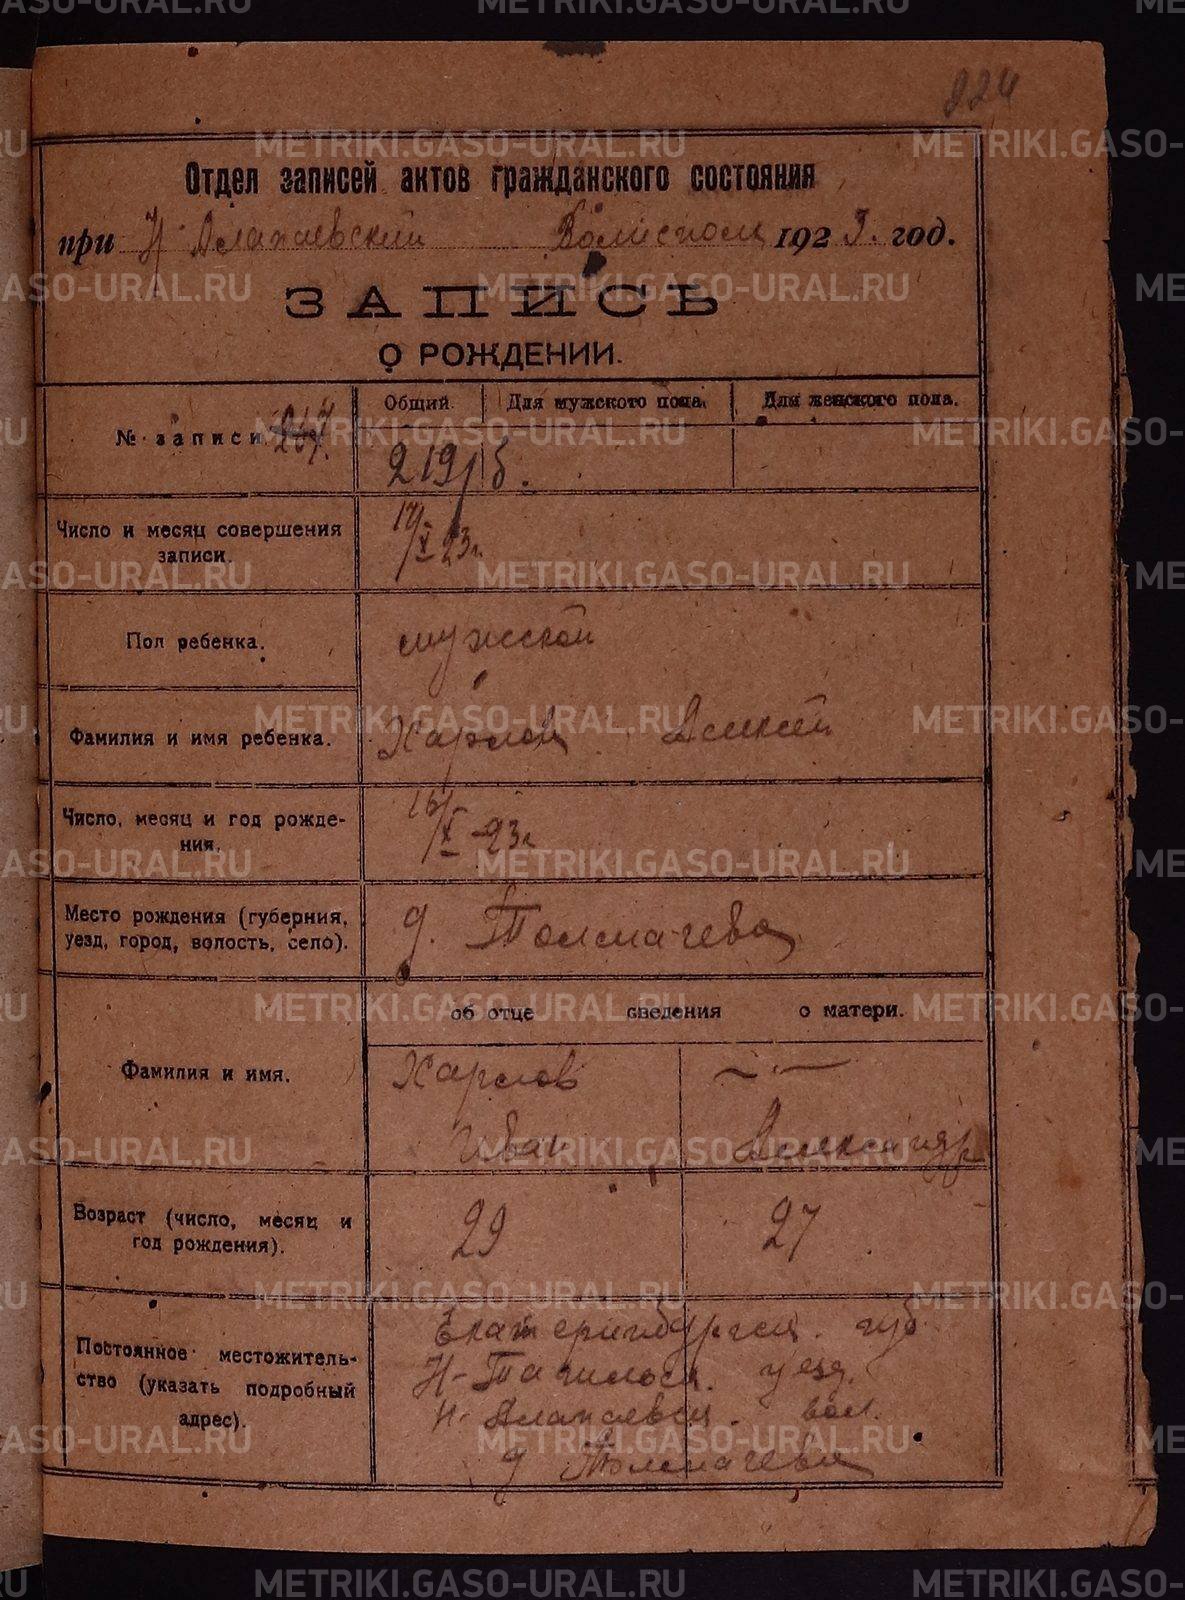 224
Отдел записей актов гражданского состояния
при Н Алапаевский Волисполк 1923. год.
ЗАПИСЬ
О РОЖДЕНИИ.
Общий Для мужского пола. Для женского пола.
№ записи 267.
219/б.
Число и месяц совершения
записи.
17/X 23г.
Пол ребенка.
мужской
Фамилия и имя ребенка.
Харлов Алексей
Число, месяц и год рожде-
ния.
16/X -23г
Место рождения (губерния,
уезд, город, волость, село).
д. Толмачева
об отце сведения о матери.
Фамилия и имя.
Харлов — · —
Иван Александр
Возраст (число, месяц и
год рождения).
29 27
Постоянное местожитель-
ство (указать подробный
адрес).
Екатеринбургск. губ
Н-Тагильск. уезд.
Н-Алапаевск. вол.
д Толмачева
METRIKI.GASO-URAL.RU